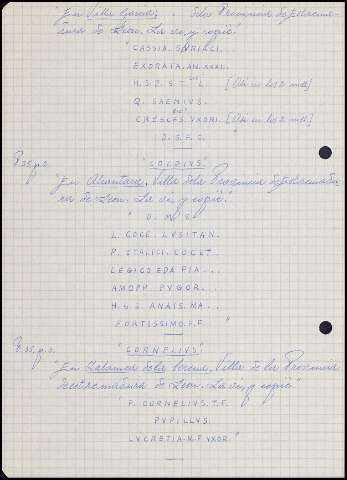 "En Villa Garcia; . Dela Provincia de Estrema-
dura de Leon. La vi, y copié."
"CASSIA. SVRIACI.
EXORATA. AN. XXXI.
H. S. E. S. T. L. [Así en los 2 mss]
Q. SAENIVS.
CRESCES. VXORI. [Así en los 2 mss]
D. S. F. C.
P. 35, p. 2.
"COCCEIUS"
"En Alcantara, Villa dela Provincia de Estremadu-
ra de Leon. La vi, y copié."
"D. M. S.
L. COCC. LVSITAN.
P. STALICI. COCET.
LEGICO EDA PIA...
AMOPP. PVGOR...
H. S. S. ANAIS. MA..
FORTISSIMO. F. F. "
P. 35, p. 2.
"CORNELIUS"
"En Zalamea de la Serena, Villa de la Provincia
de estremadura de Leon. La vi, y copié."
"P. CORNELIVS. T. F.
PVPILLVS.
LVCRETIA. M. F. VXOR."